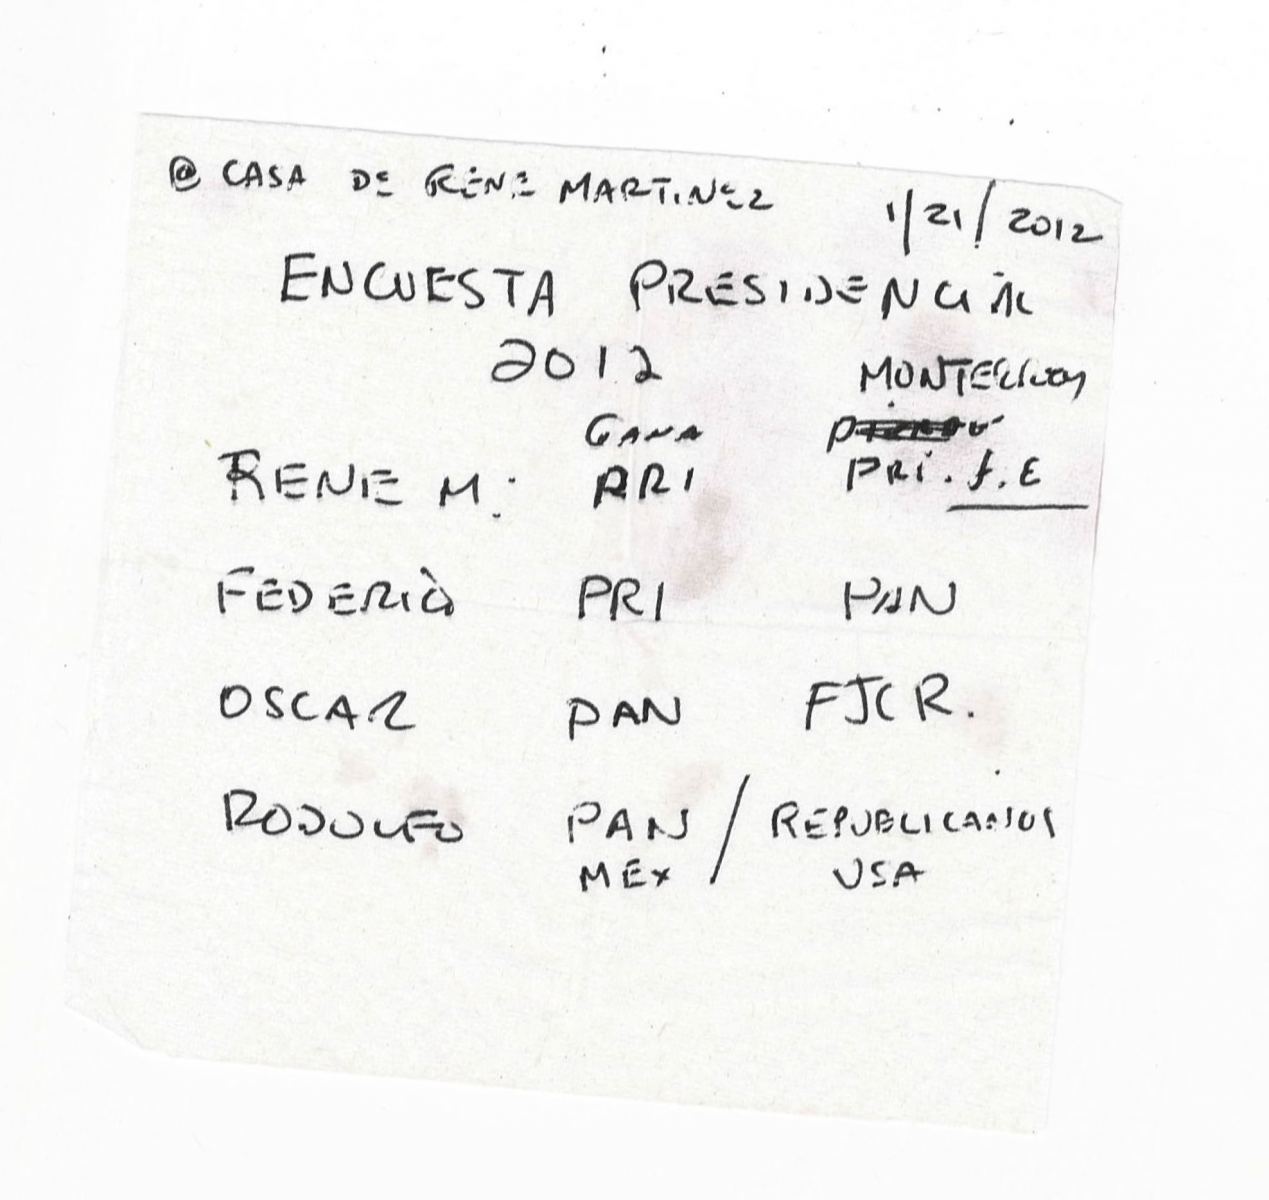 @ CASA DE RENE MARTINEZ 1/21/2012
ENCUESTA PRESIDENCIAL
2012
MONTERREY
GANA
RENE M: PRI PRI. f.E
FEDERICO PRI PAN
OSCAR PAN FJCR.
RODOLFO PAN / REPUBLICANOS
MEX USA